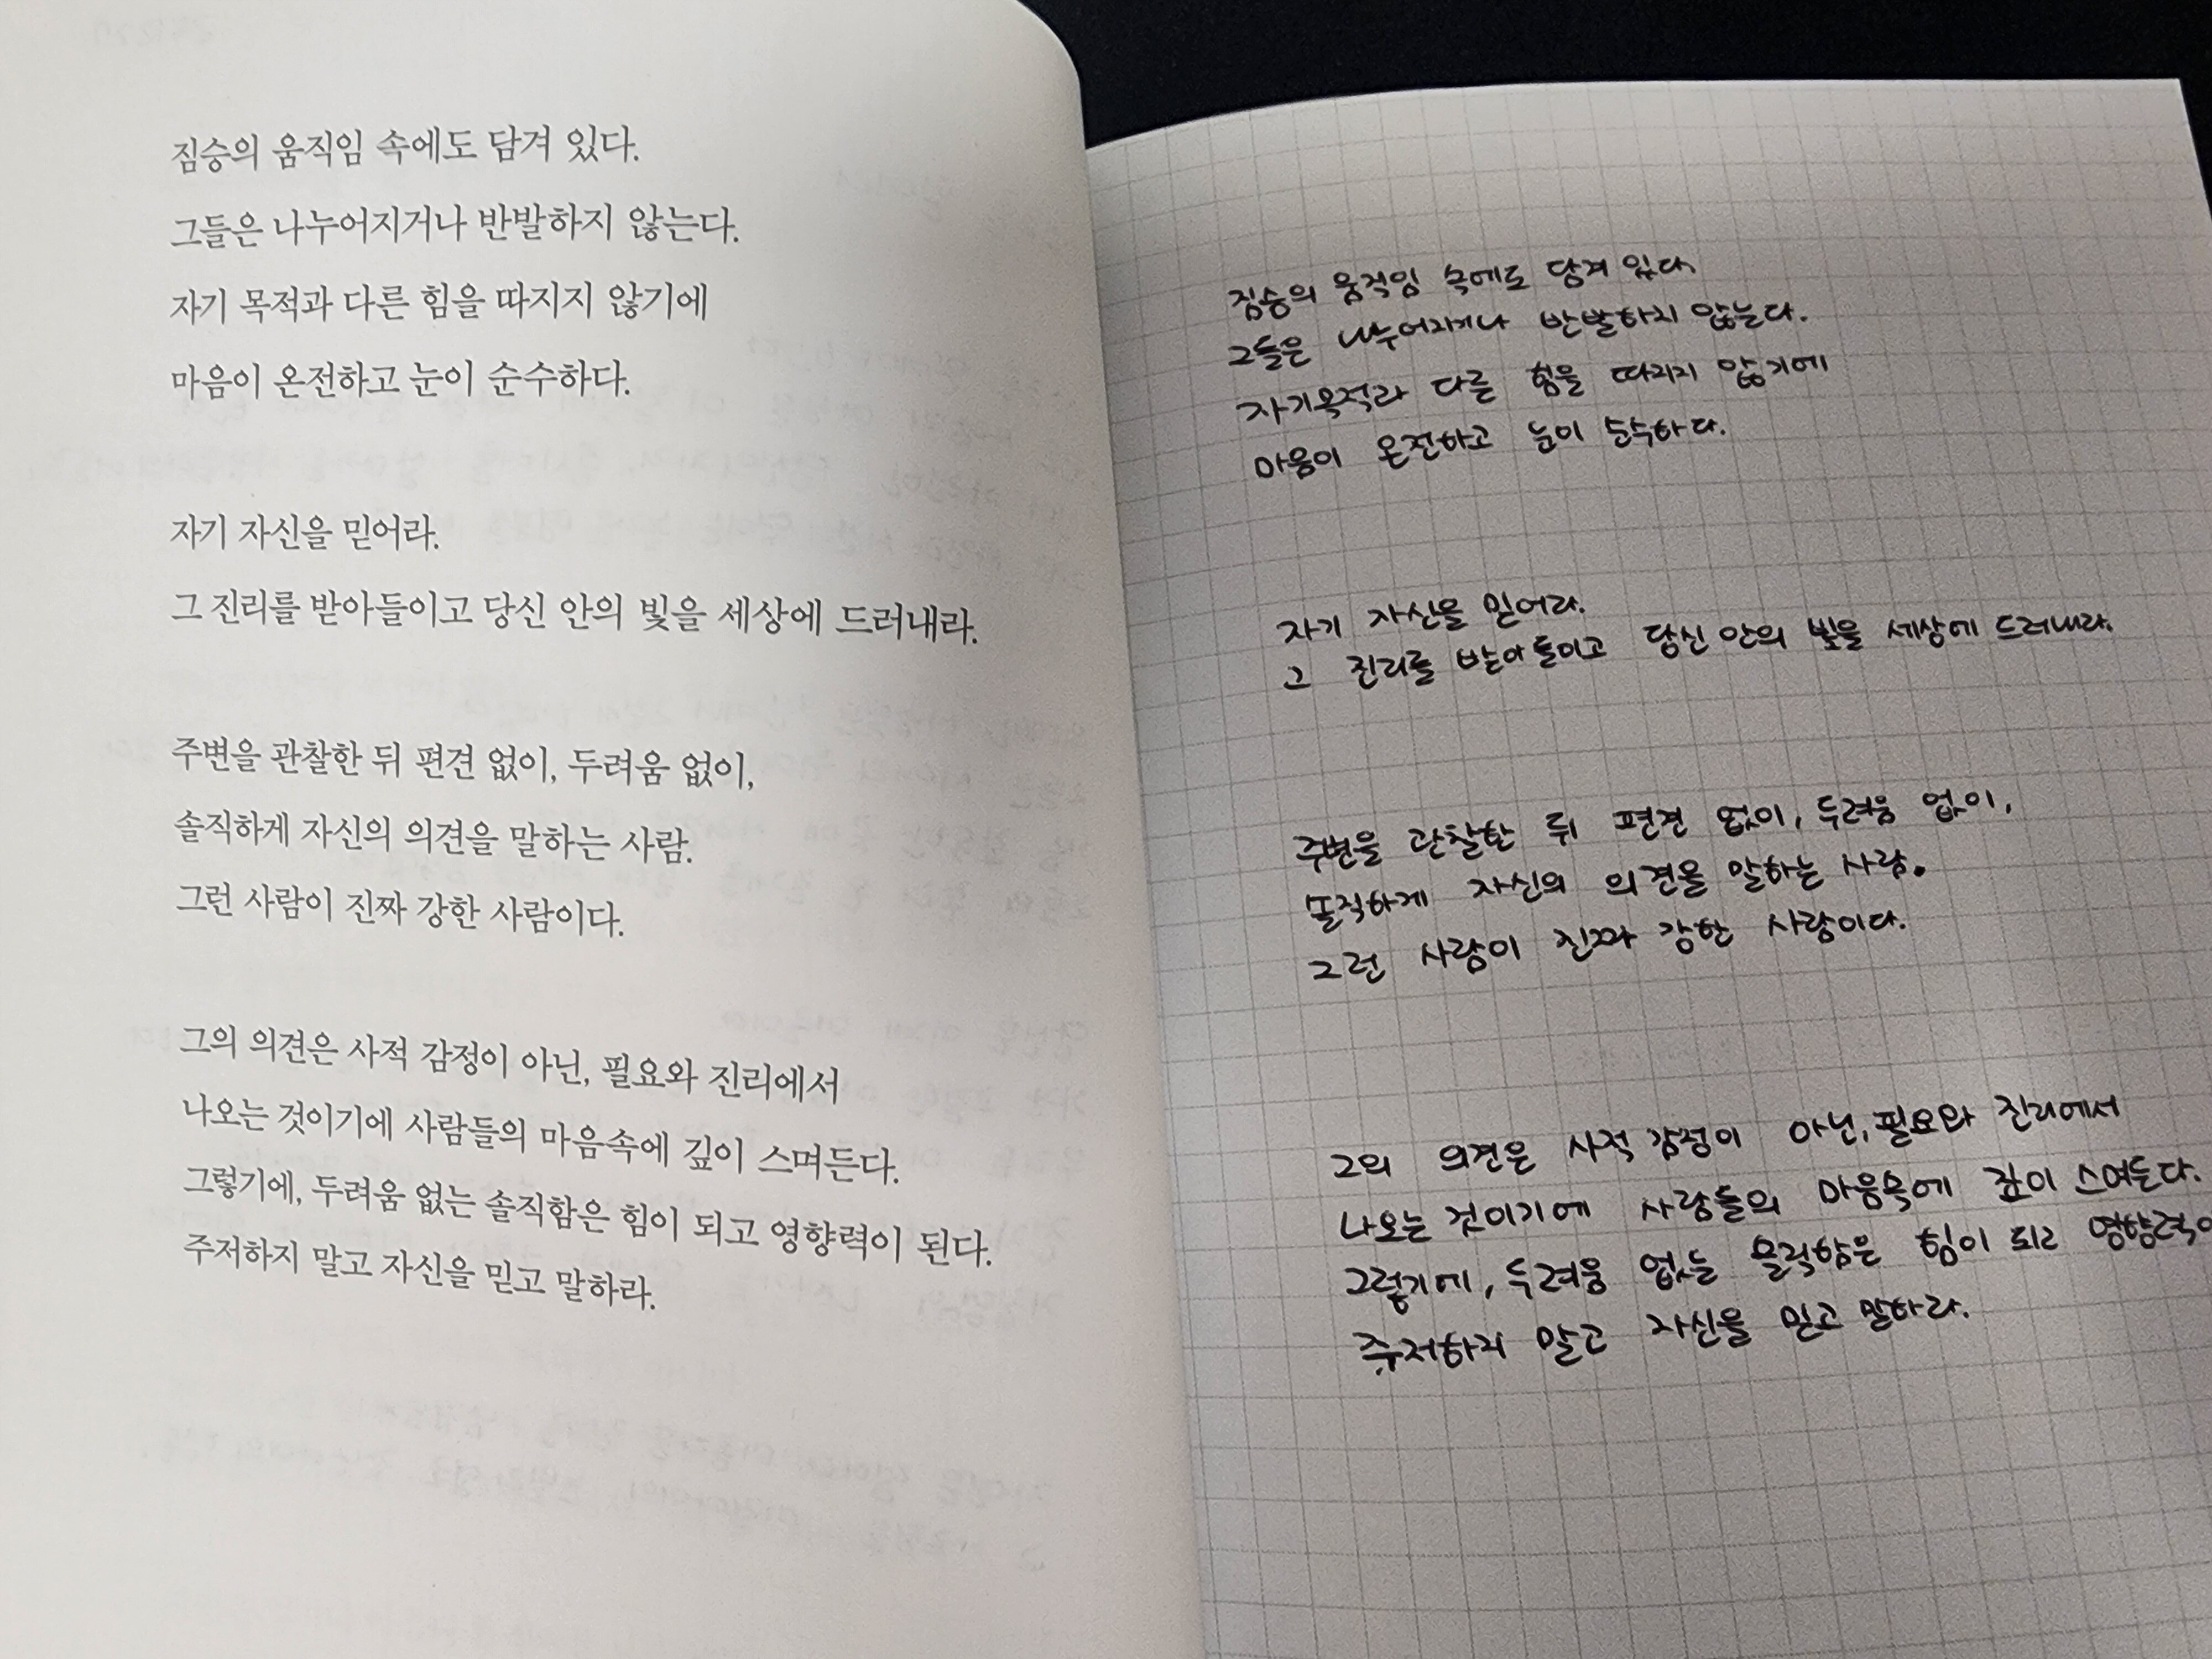 짐승의 움직임 속에도 담겨 있다.
그들은 나누어지거나 반발하지 않는다.
자기 목적과 다른 힘을 따지지 않기에
마음이 온전하고 눈이 순수하다.
자기 자신을 믿어라.
그 진리를 받아들이고 당신 안의 빛을 세상에 드러내라.
주변을 관찰한 뒤 편견 없이, 두려움 없이,
솔직하게 자신의 의견을 말하는 사람.
그런 사람이 진짜 강한 사람이다.
그의 의견은 사적 감정이 아닌, 필요와 진리에서
나오는 것이기에 사람들의 마음속에 깊이 스며든다.
그렇기에, 두려움 없는 솔직함은 힘이 되고 영향력이 된다.
주저하지 말고 자신을 믿고 말하라.
짐승의 움직임 속에도 담겨 있다.
그들은 나누어지거나 반발하지 않는다.
자기목적과 다른 힘을 따지지 않기에
마음이 온전하고 눈이 순수하다.
자기 자신을 믿어라.
그 진리를 받아들이고 당신 안의 빛을 세상에 드러내라.
주변을 관찰한 뒤 편견 없이, 두려움 없이,
솔직하게 자신의 의견을 말하는 사람.
그런 사람이 진짜 강한 사람이다.
그의 의견은 사적 감정이 아닌, 필요와 진리에서
나오는 것이기에 사람들의 마음속에 깊이 스며든다.
그렇기에, 두려움 없는 솔직함은 힘이 되고 영향력
주저하지 말고 자신을 믿고 말하라.